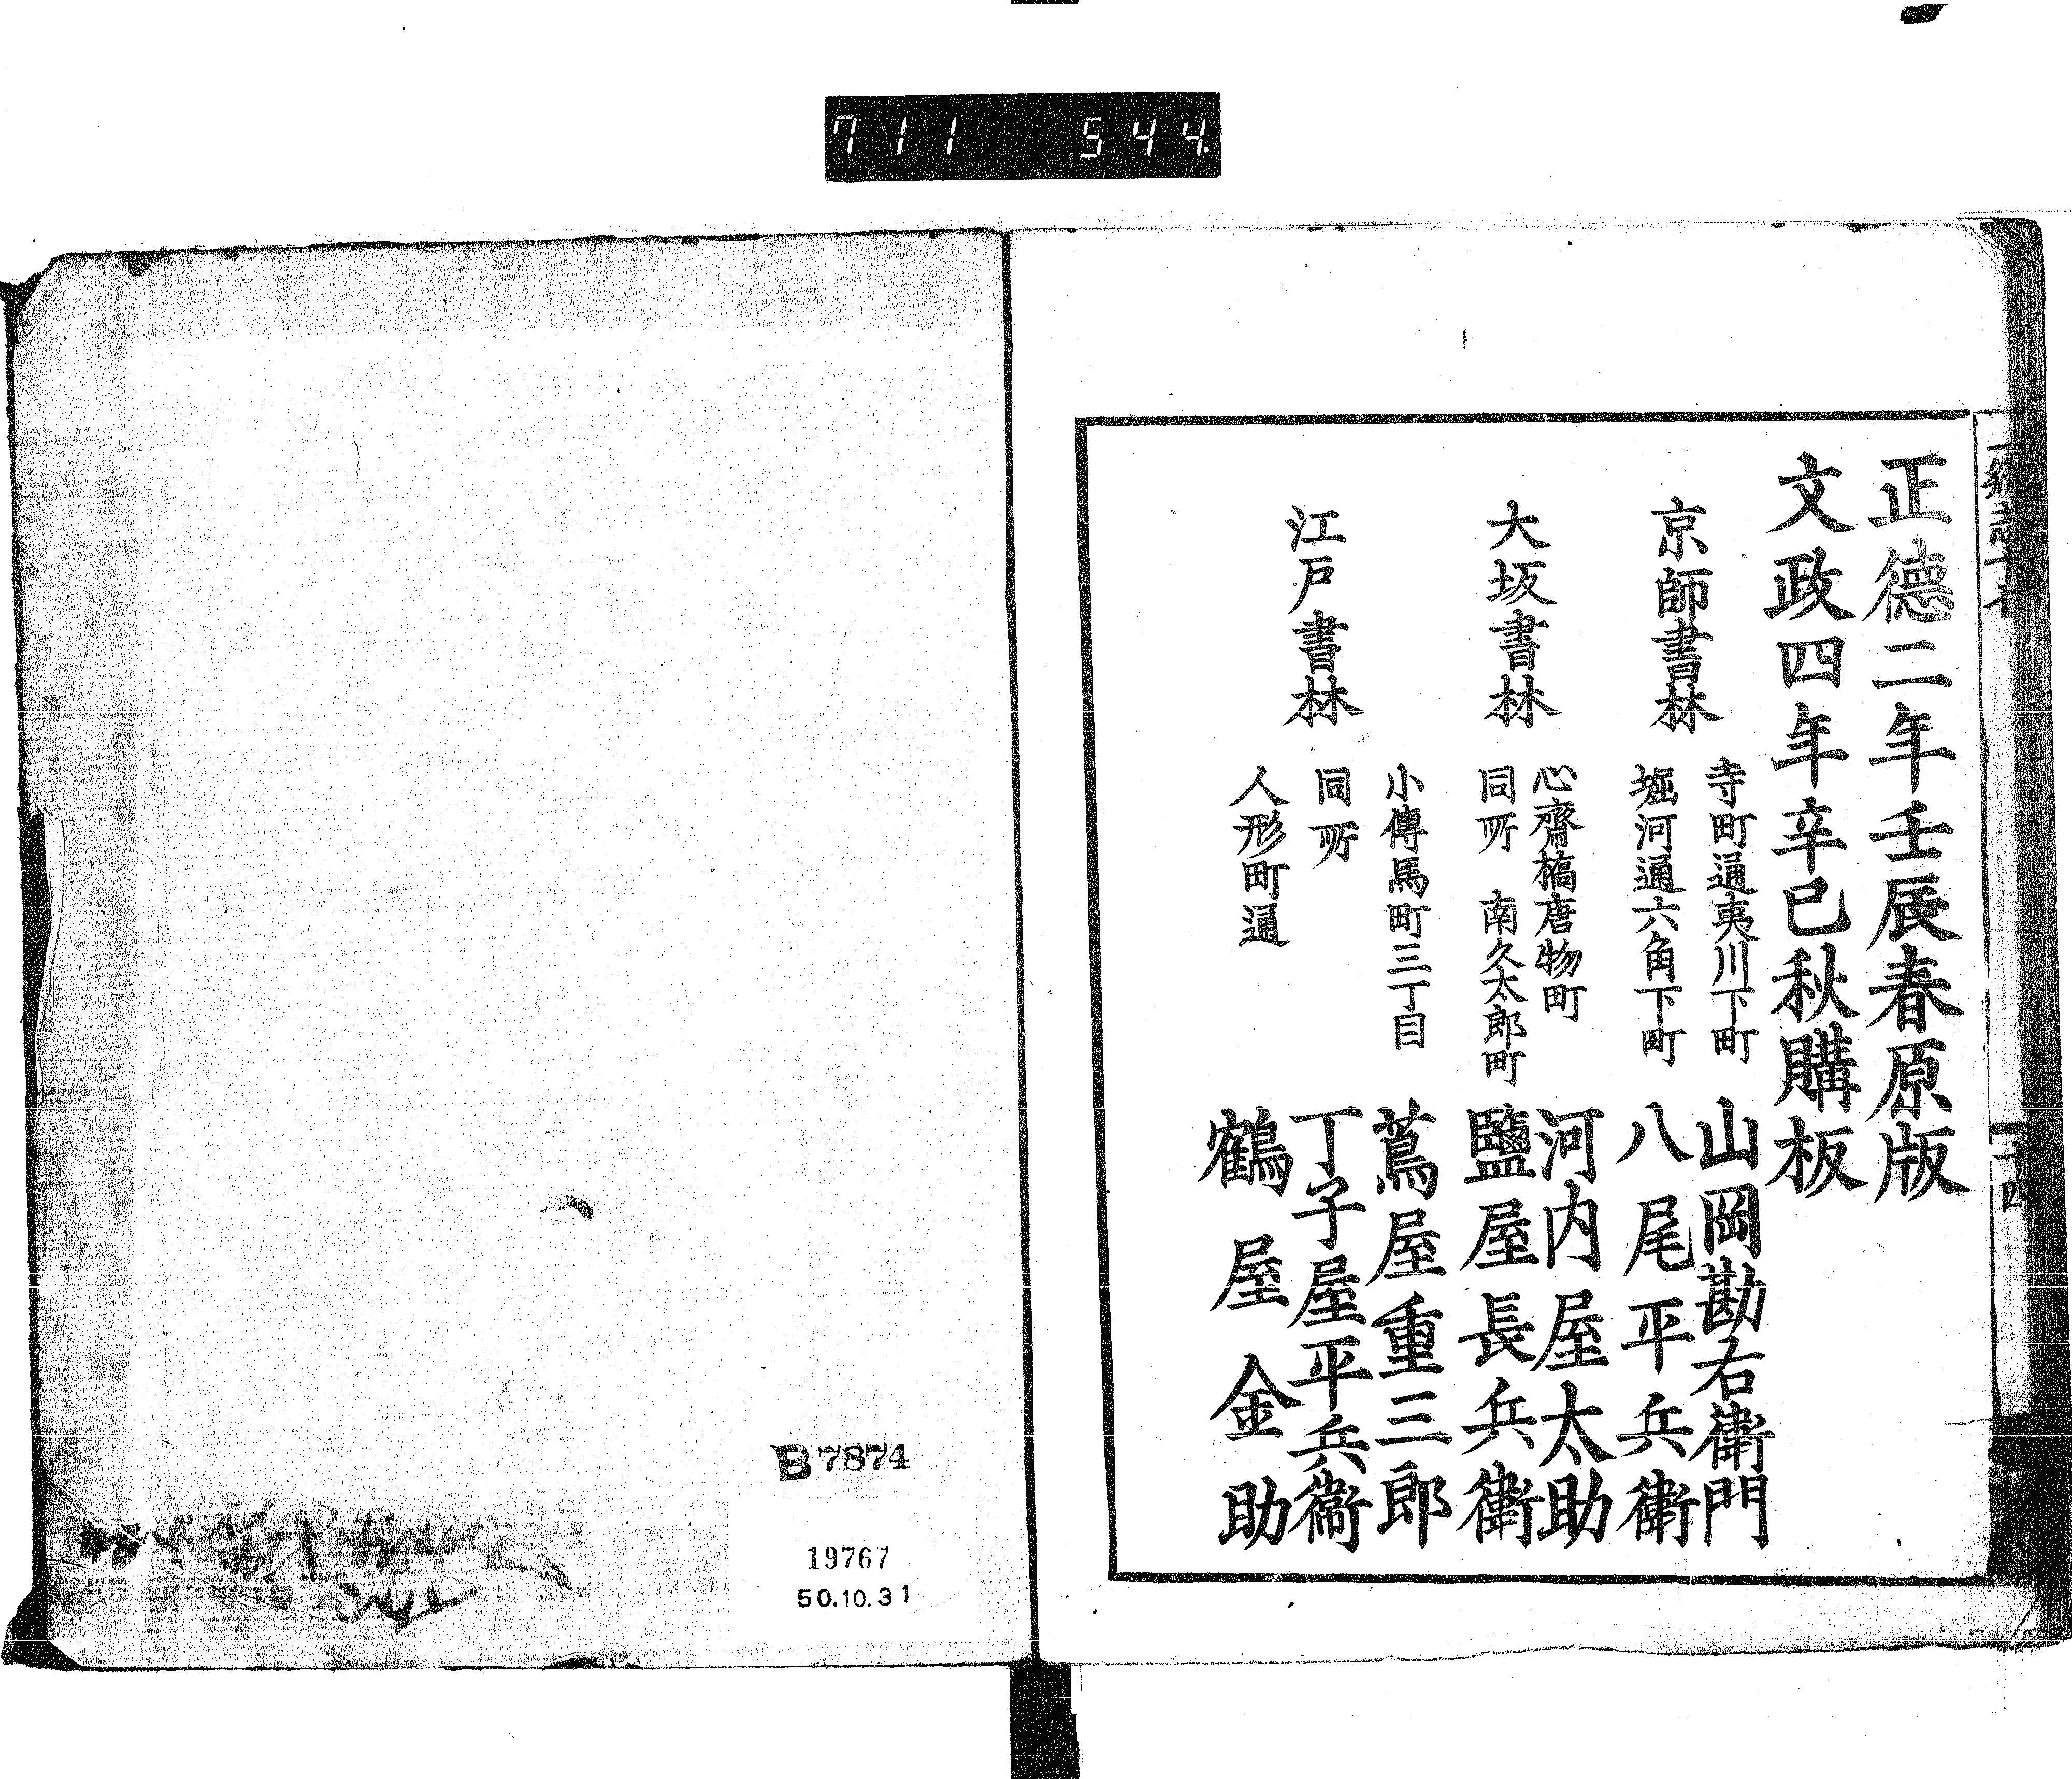 711 544.
正德二年壬辰春原版
文政四年辛巳秋購板
京師書林
寺町通夷川下町 山岡勘右衛門
堀河通六角下町 八尾平兵衛
大坂書林
心齋橋唐物町 河内屋太助
同所 南久太郎町 鹽屋長兵衛
江戸書林
小傳馬町三丁目 蔦屋重三郎
同所 丁子屋平兵衛
人形町通 鶴屋金助
B7874
19767
50.10.31